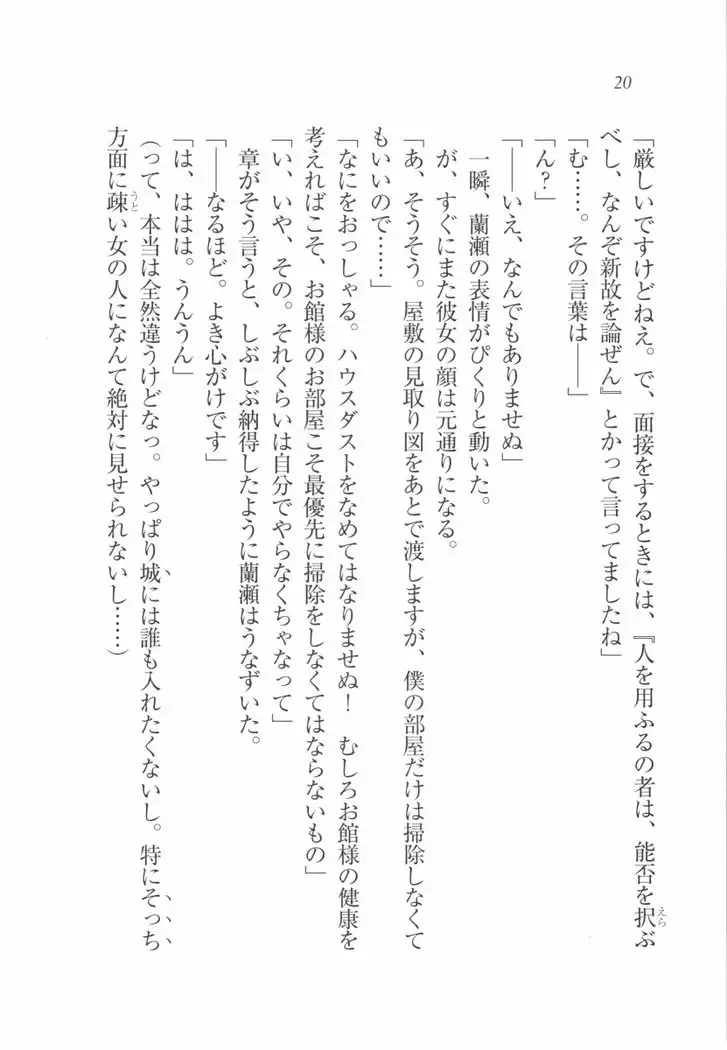 20
「厳しいですけどねえ。で、面接をするときには、『人を用ふるの者は、能否を択ぶ
べし、なんぞ新故を論ぜん』とかって言ってましたね」
「む……。その言葉は――」
「ん？」
「――いえ、なんでもありませぬ」
一瞬、蘭瀬の表情がぴくりと動いた。
が、すぐにまた彼女の顔は元通りになる。
「あ、そうそう。屋敷の見取り図をあとで渡しますが、僕の部屋だけは掃除しなくて
もいいので……」
「なにをおっしゃる。ハウスダストをなめてはなりませぬ！　むしろお館様の健康を
考えればこそ、お館様のお部屋こそ最優先に掃除をしなくてはならないもの」
「い、いや、その。それくらいは自分でやらなくちゃなって」
章がそう言うと、しぶしぶ納得したように蘭瀬はうなずいた。
「――なるほど。よき心がけです」
「は、ははは。うんうん」
（って、本当は全然違うけどなっ。やっぱり城には誰も入れたくないし。特にそっち
方面に疎い女の人になんて絶対に見せられないし……）
えら
うと